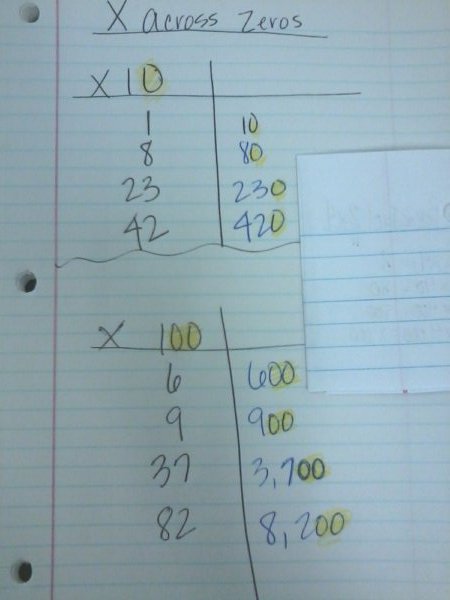 X across zeros
X 10
1 10
8 80
23 230
42 420
X 100
6 600
9 900
37 3,700
82 8,200